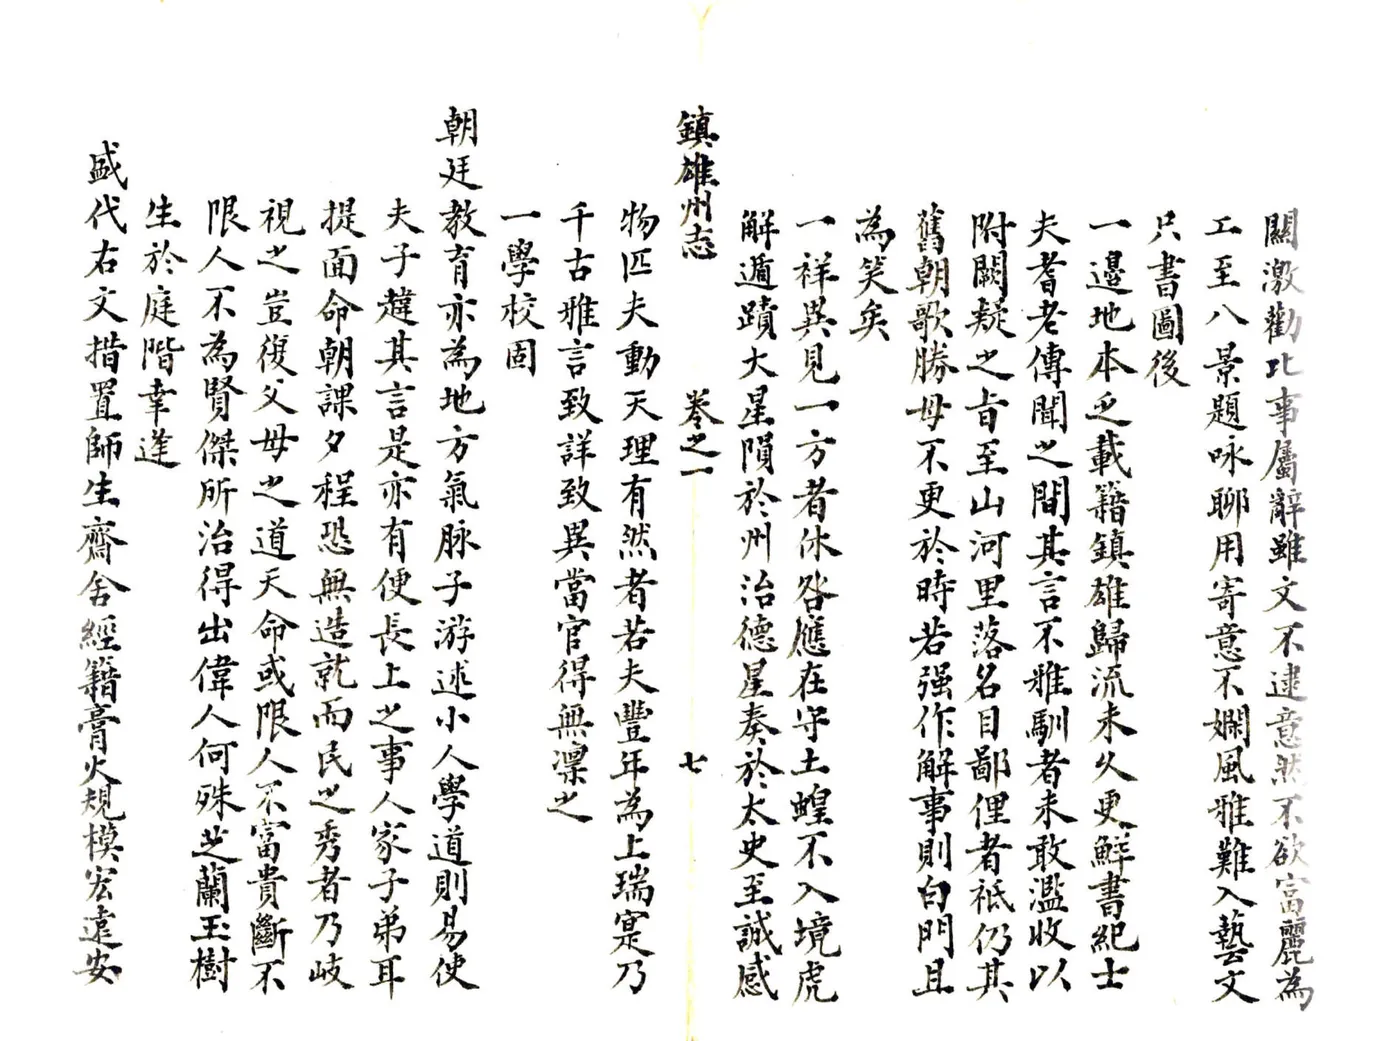 關激勸比事屬辭雖文不逮意然不欲富麗為
工至八景題咏聊用寄意不嫻風雅難入藝文
只書圖後
一邊地本乏載籍鎮雄歸流未久更鮮書紀士
夫耆老傳聞之間其言不雅馴者未敢濫收以
附闕疑之旨至山河里落名目鄙俚者祗仍其
舊朝歌勝母不更於時若强作解事則白門且
為笑矣
一祥異見一方者休咎應在守土蝗不入境虎
解遁蹟大星隕於州治德星奏於太史至誠感
鎮雄州志 卷之一 七
物匹夫動天理有然者若夫豐年為上瑞寔乃
千古雅言致詳致異當官得無凜之
一學校固
朝廷教育亦為地方氣脉子游述小人學道則易使
夫子韙其言是亦有使長上之事人家子弟耳
提面命朝課夕程恐無造就而民之秀者乃歧
視之豈復父母之道天命或限人不富貴斷不
限人不為賢傑所治得出偉人何殊芝蘭玉樹
生於庭階幸逢
盛代右文措置師生齋舍經籍膏火規模宏遠安